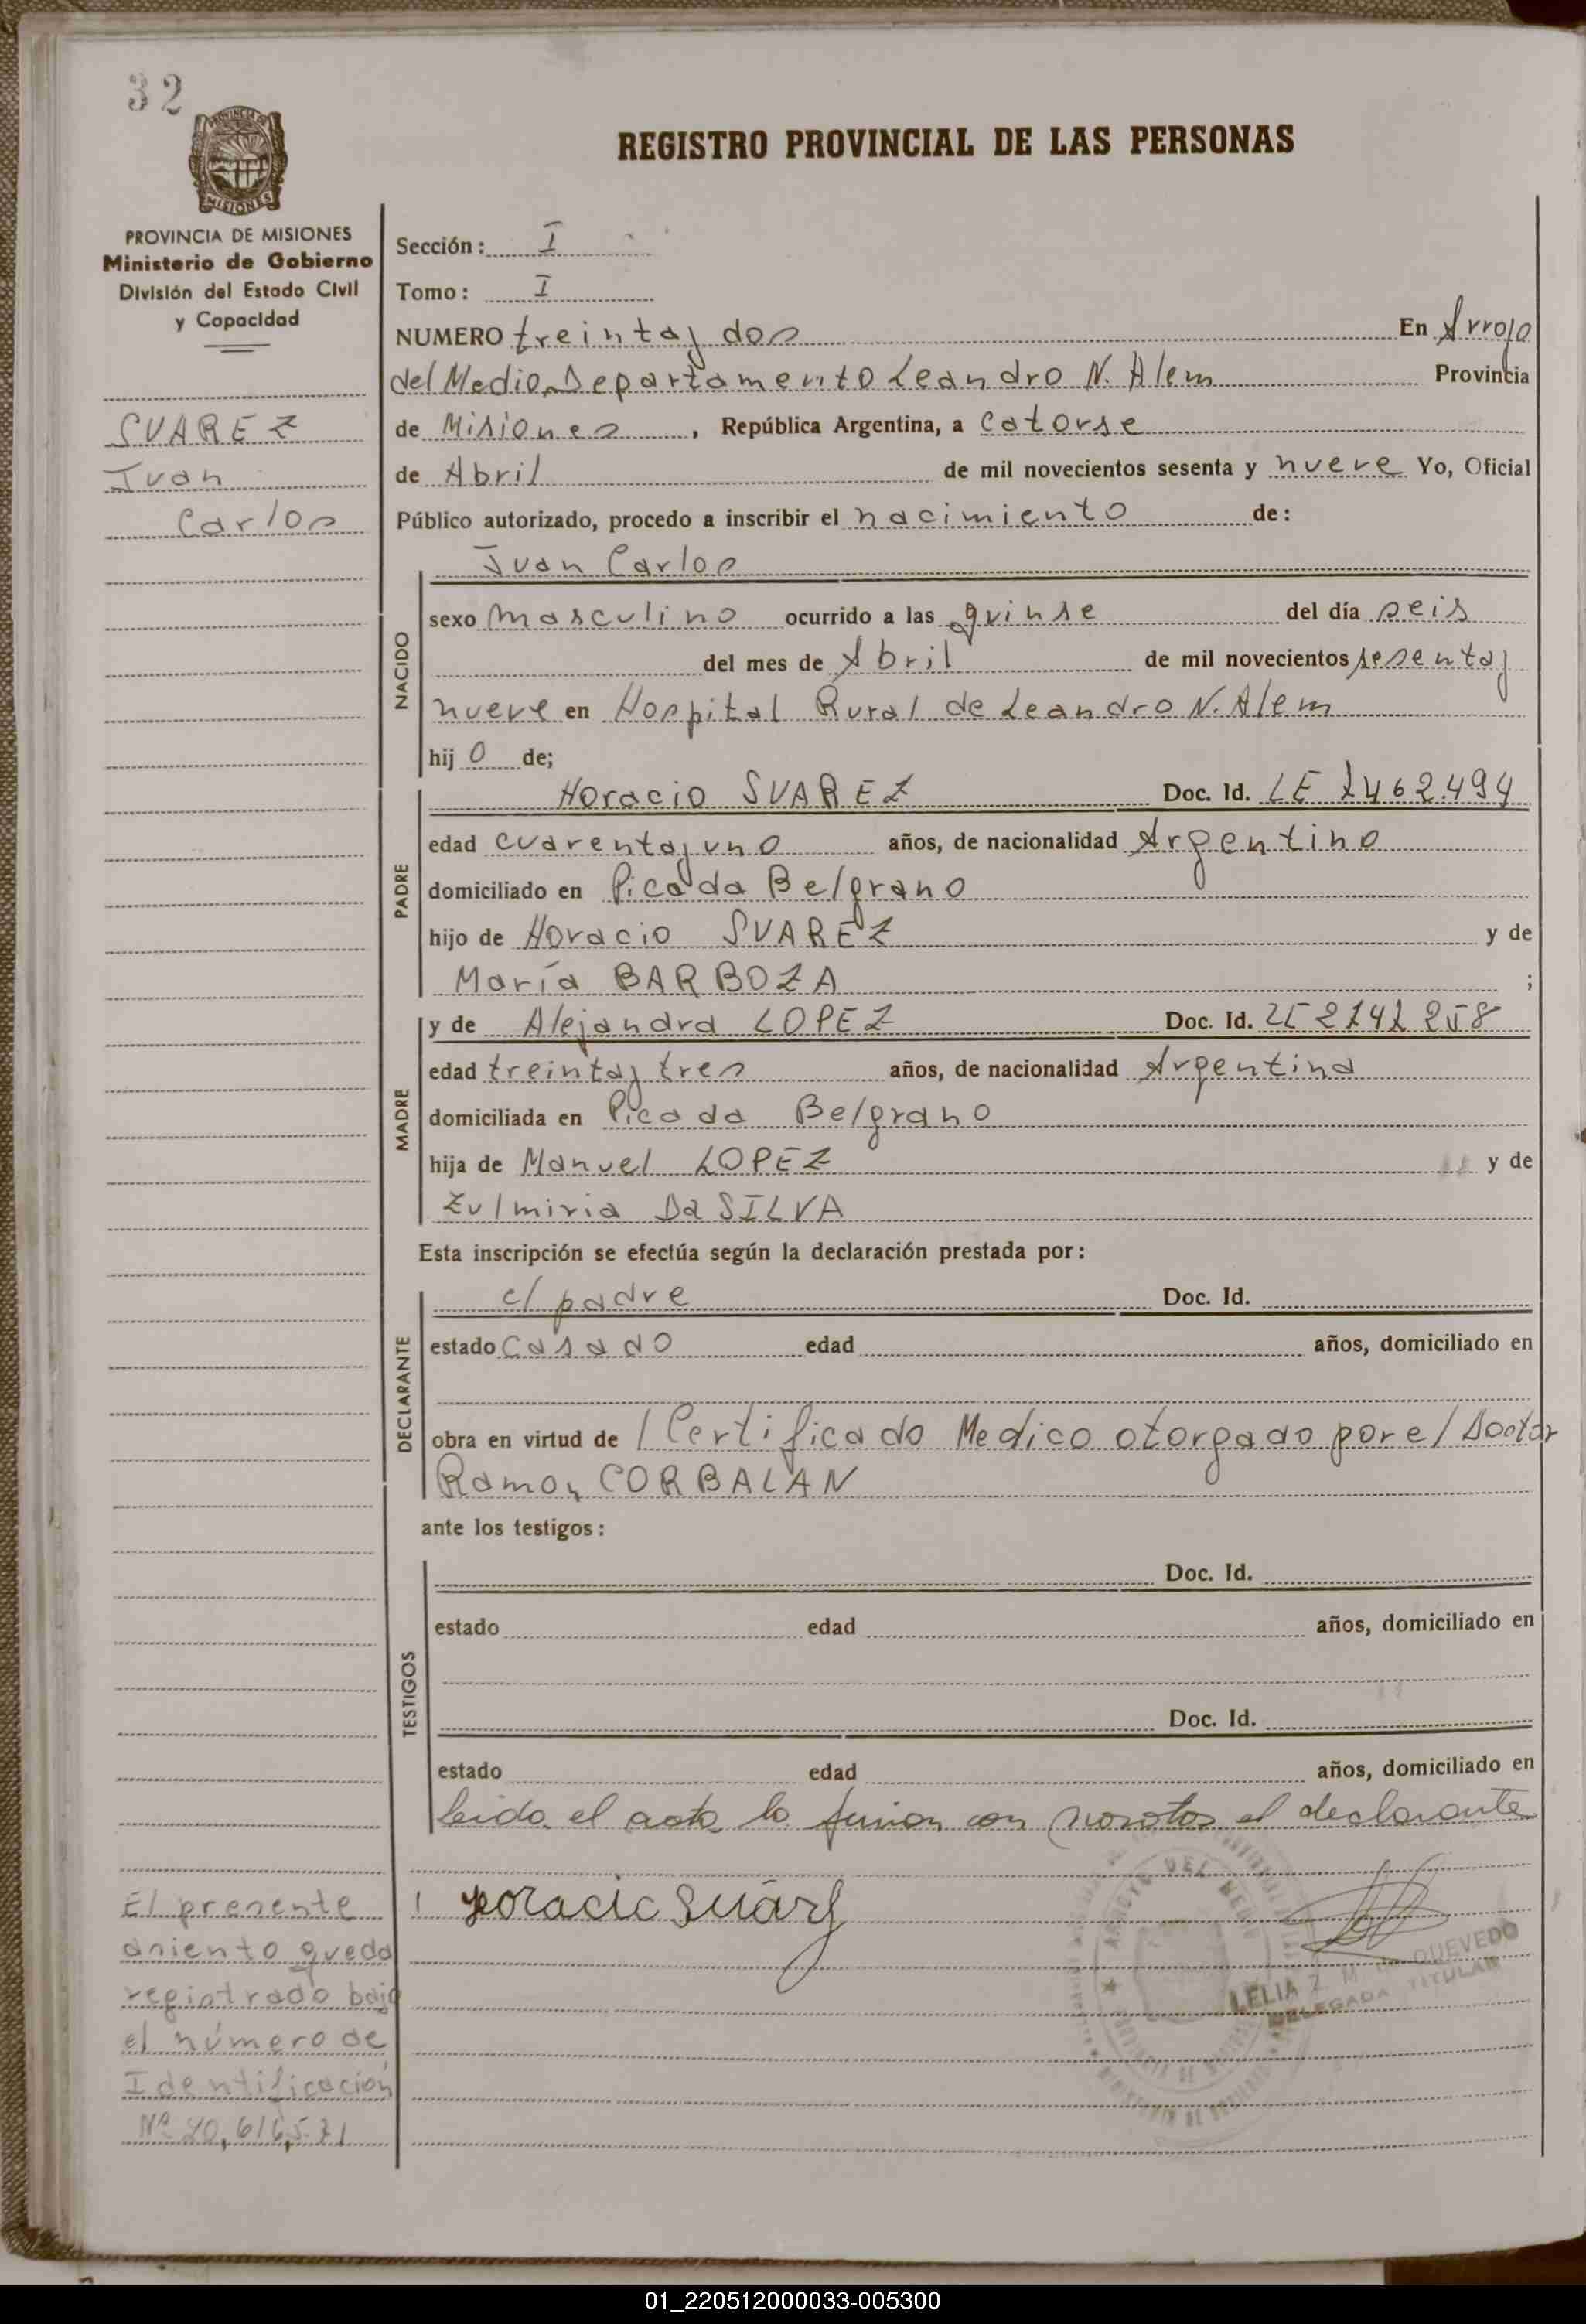 32
REGISTRO PROVINCIAL DE LAS PERSONAS
PROVINCIA DE MISIONES
Ministerio de Gobierno
División del Estado Civil
y Capacidad
SUAREZ
Juan
Carlos
Sección: I
Tomo: I
NUMERO treinta y dos En Arroyo
del Medio Departamento Leandro N. Alem Provincia
de Misiones, República Argentina, a Catorse
de Abril de mil novecientos sesenta y nueve Yo, Oficial
Público autorizado, procedo a inscribir el nacimiento de:
NACIDO
Juan Carlos
sexo masculino ocurrido a las quinse del día seis
del mes de Abril de mil novecientos sesenta y
nueve en Hospital Rural de Leandro N. Alem
hijo de;
PADRE
Horacio SUAREZ Doc. Id. LE 7.462.494
edad cuarenta y uno años, de nacionalidad Argentino
domiciliado en Picada Belgrano
hijo de Horacio SUAREZ y de
María BARBOZA ;
MADRE
y de Alejandra LOPEZ Doc. Id.
edad treinta y tres años, de nacionalidad Argentina
domiciliada en Picada Belgrano
hija de Manuel LOPEZ y de
Zulmiria Da SILVA
Esta inscripción se efectúa según la declaración prestada por:
DECLARANTE
el padre Doc. Id.
estado Casado edad años, domiciliado en
obra en virtud de / Certificado Medico otorgado por el Doctor
Ramon CORBALAN
ante los testigos:
TESTIGOS
Doc. Id.
estado edad años, domiciliado en
Doc. Id.
estado edad años, domiciliado en
leida el acta la firman con nosotos el declarante
Horacio Suárez
LELIA Z. M. de QUEVEDO
DELEGADA TITULAR
El presente
asiento queda
registrado bajo
el número de
Identificación
Nº
01_220512000033-005300